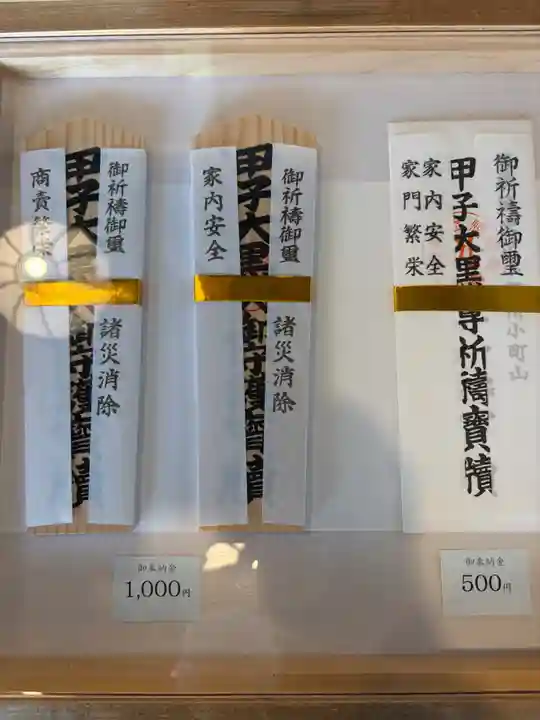 御祈禱御璽
諸災消除
甲子大黒
商賣繁栄
御祈禱御璽
諸災消除
甲子大黒
家内安全
御祈禱御璽
小町山
甲子大黒尊祈禱寶牘
家内安全
家門繁栄
御奉納金
1,000円
御奉納金
500円